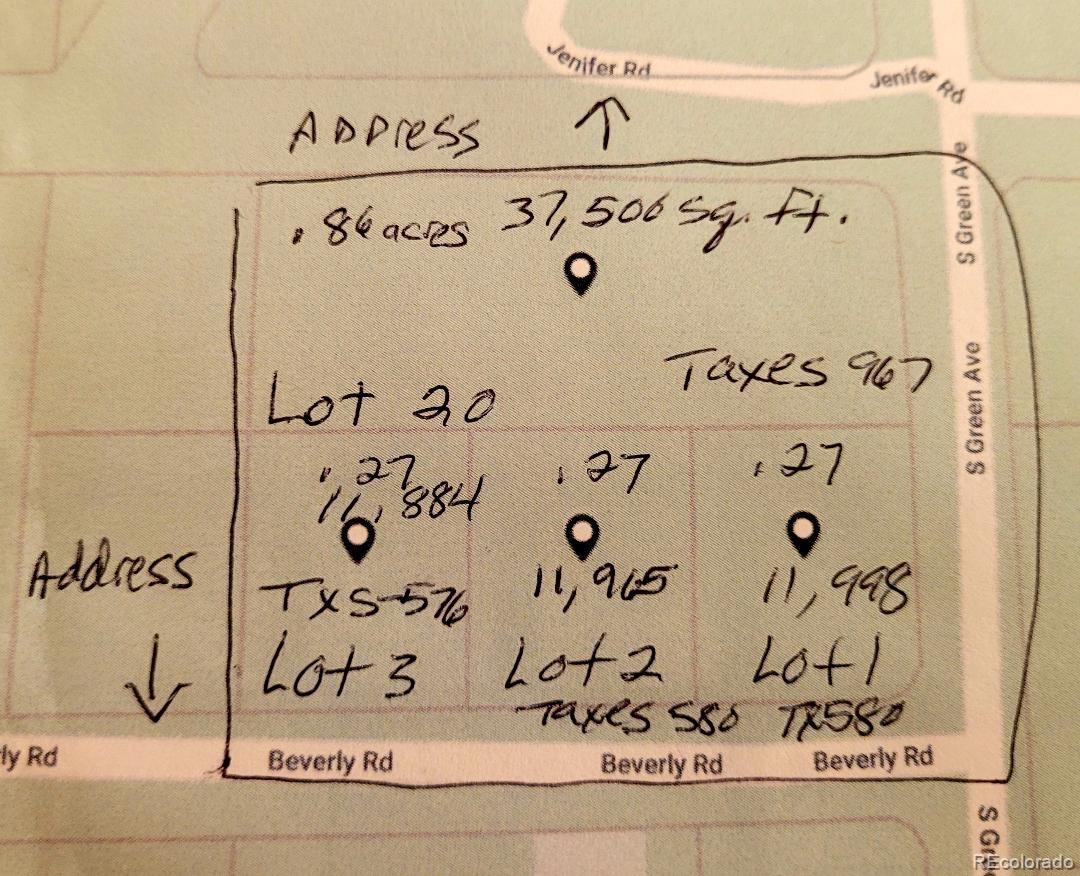 Jenifer Rd
Jenifer Rd
ADDress
S Green Ave
.86 acres 37,506 Sq. Ft.
Taxes 967
Lot 20
S Green Ave
.27 .27 .27
11,884
Address
11,965 11,998
Txs-576
Lot 3 Lot 2 Lot 1
Taxes 580 TX580
ly Rd Beverly Rd Beverly Rd Beverly Rd
S Gre
REcolorado